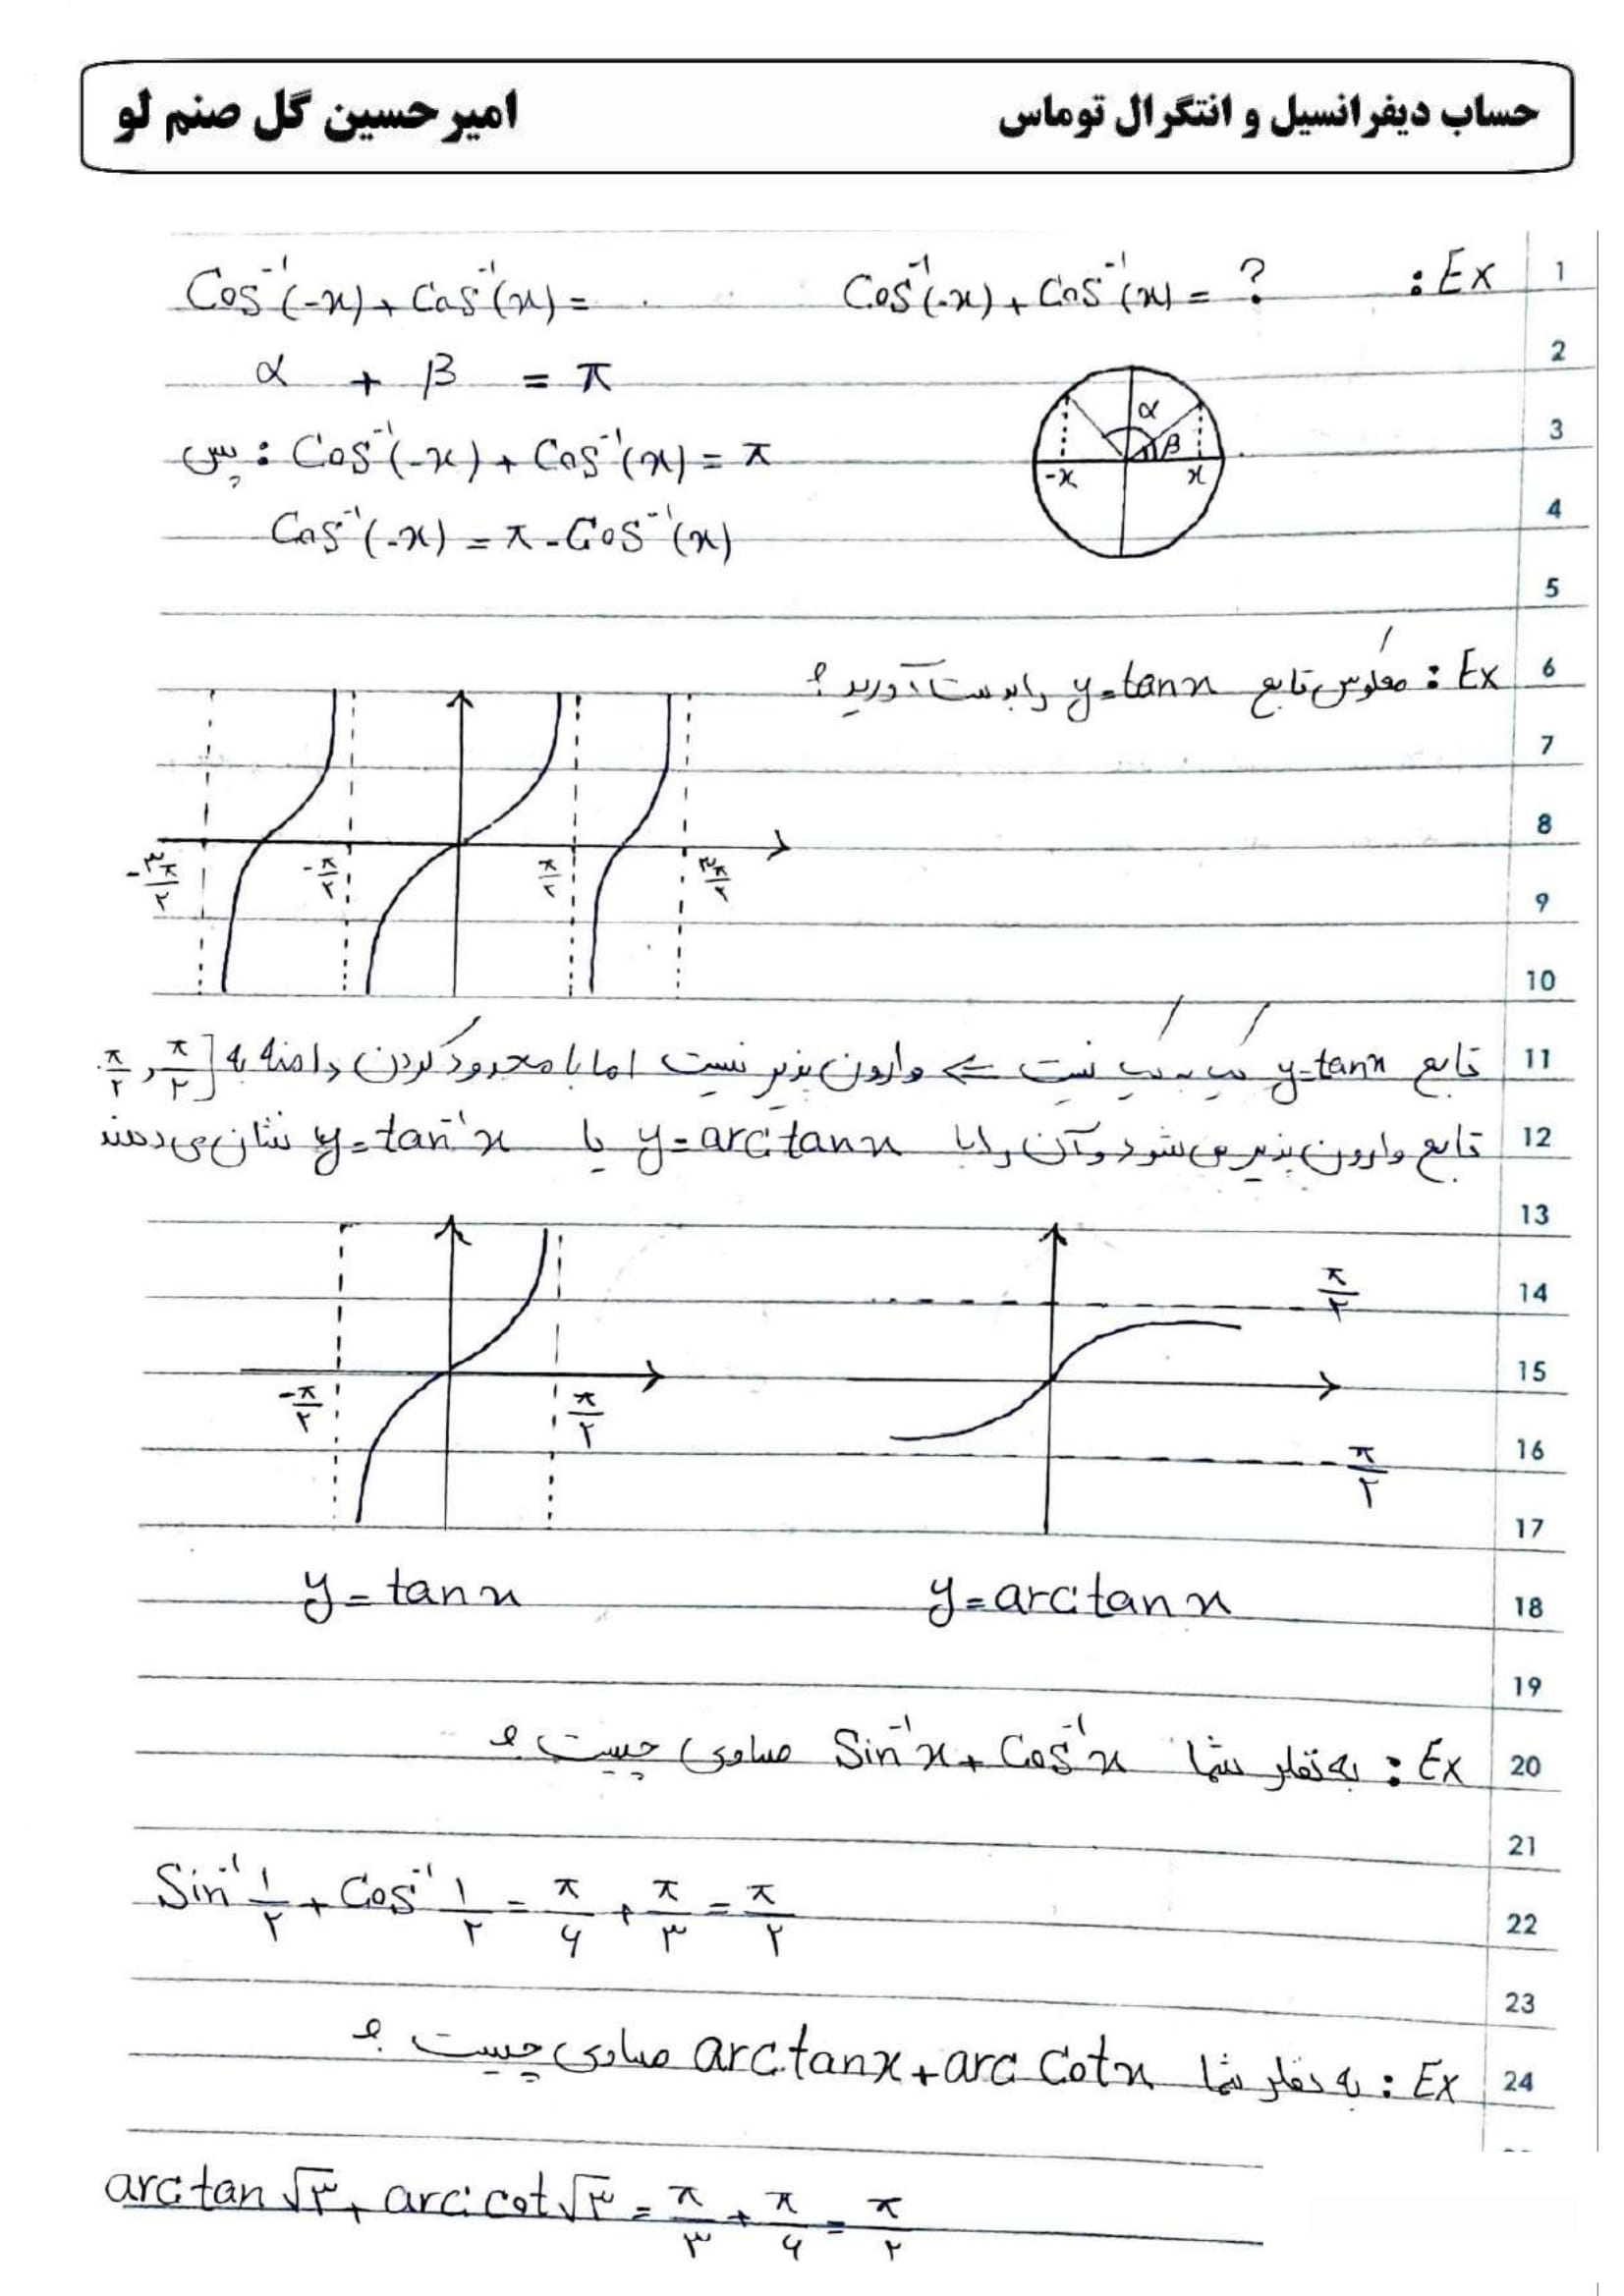 حساب دیفرانسیل و انتگرال توماس امیرحسین گل صنم لو
1 Ex : Cos⁻¹(-x) + Cos⁻¹(x) = ? Cos⁻¹(-x) + Cos⁻¹(x) =
2 α + β = π
α β -x x
3 پس : Cos⁻¹(-x) + Cos⁻¹(x) = π
4 Cos⁻¹(-x) = π - Cos⁻¹(x)
5
6 Ex : معکوس تابع y=tanx را بدست آورید؟
7
8
-۳π/۲ -π/۲ π/۲ ۳π/۲
9
10
11 تابع y=tanx یک به یک نیست ⇒ وارون پذیر نیست اما با محدود کردن دامنه به [π/۲ , π/۲
12 تابع وارون پذیر می شود و آن را با y=arctanx یا y=tan⁻¹x نشان می دهند
13
14 π/۲
15
-π/۲ π/۲
16 -π/۲
17
18 y=tanx y=arctanx
19
20 Ex : به نظر شما Sin⁻¹x + Cos⁻¹x مساوی چیست ؟
21
22 Sin⁻¹ ۱/۲ + Cos⁻¹ ۱/۲ = π/۶ + π/۳ = π/۲
23
24 Ex : به نظر شما arctanx + arc Cotx مساوی چیست ؟
arctan √۳ + arc cot √۳ = π/۳ + π/۶ = π/۲